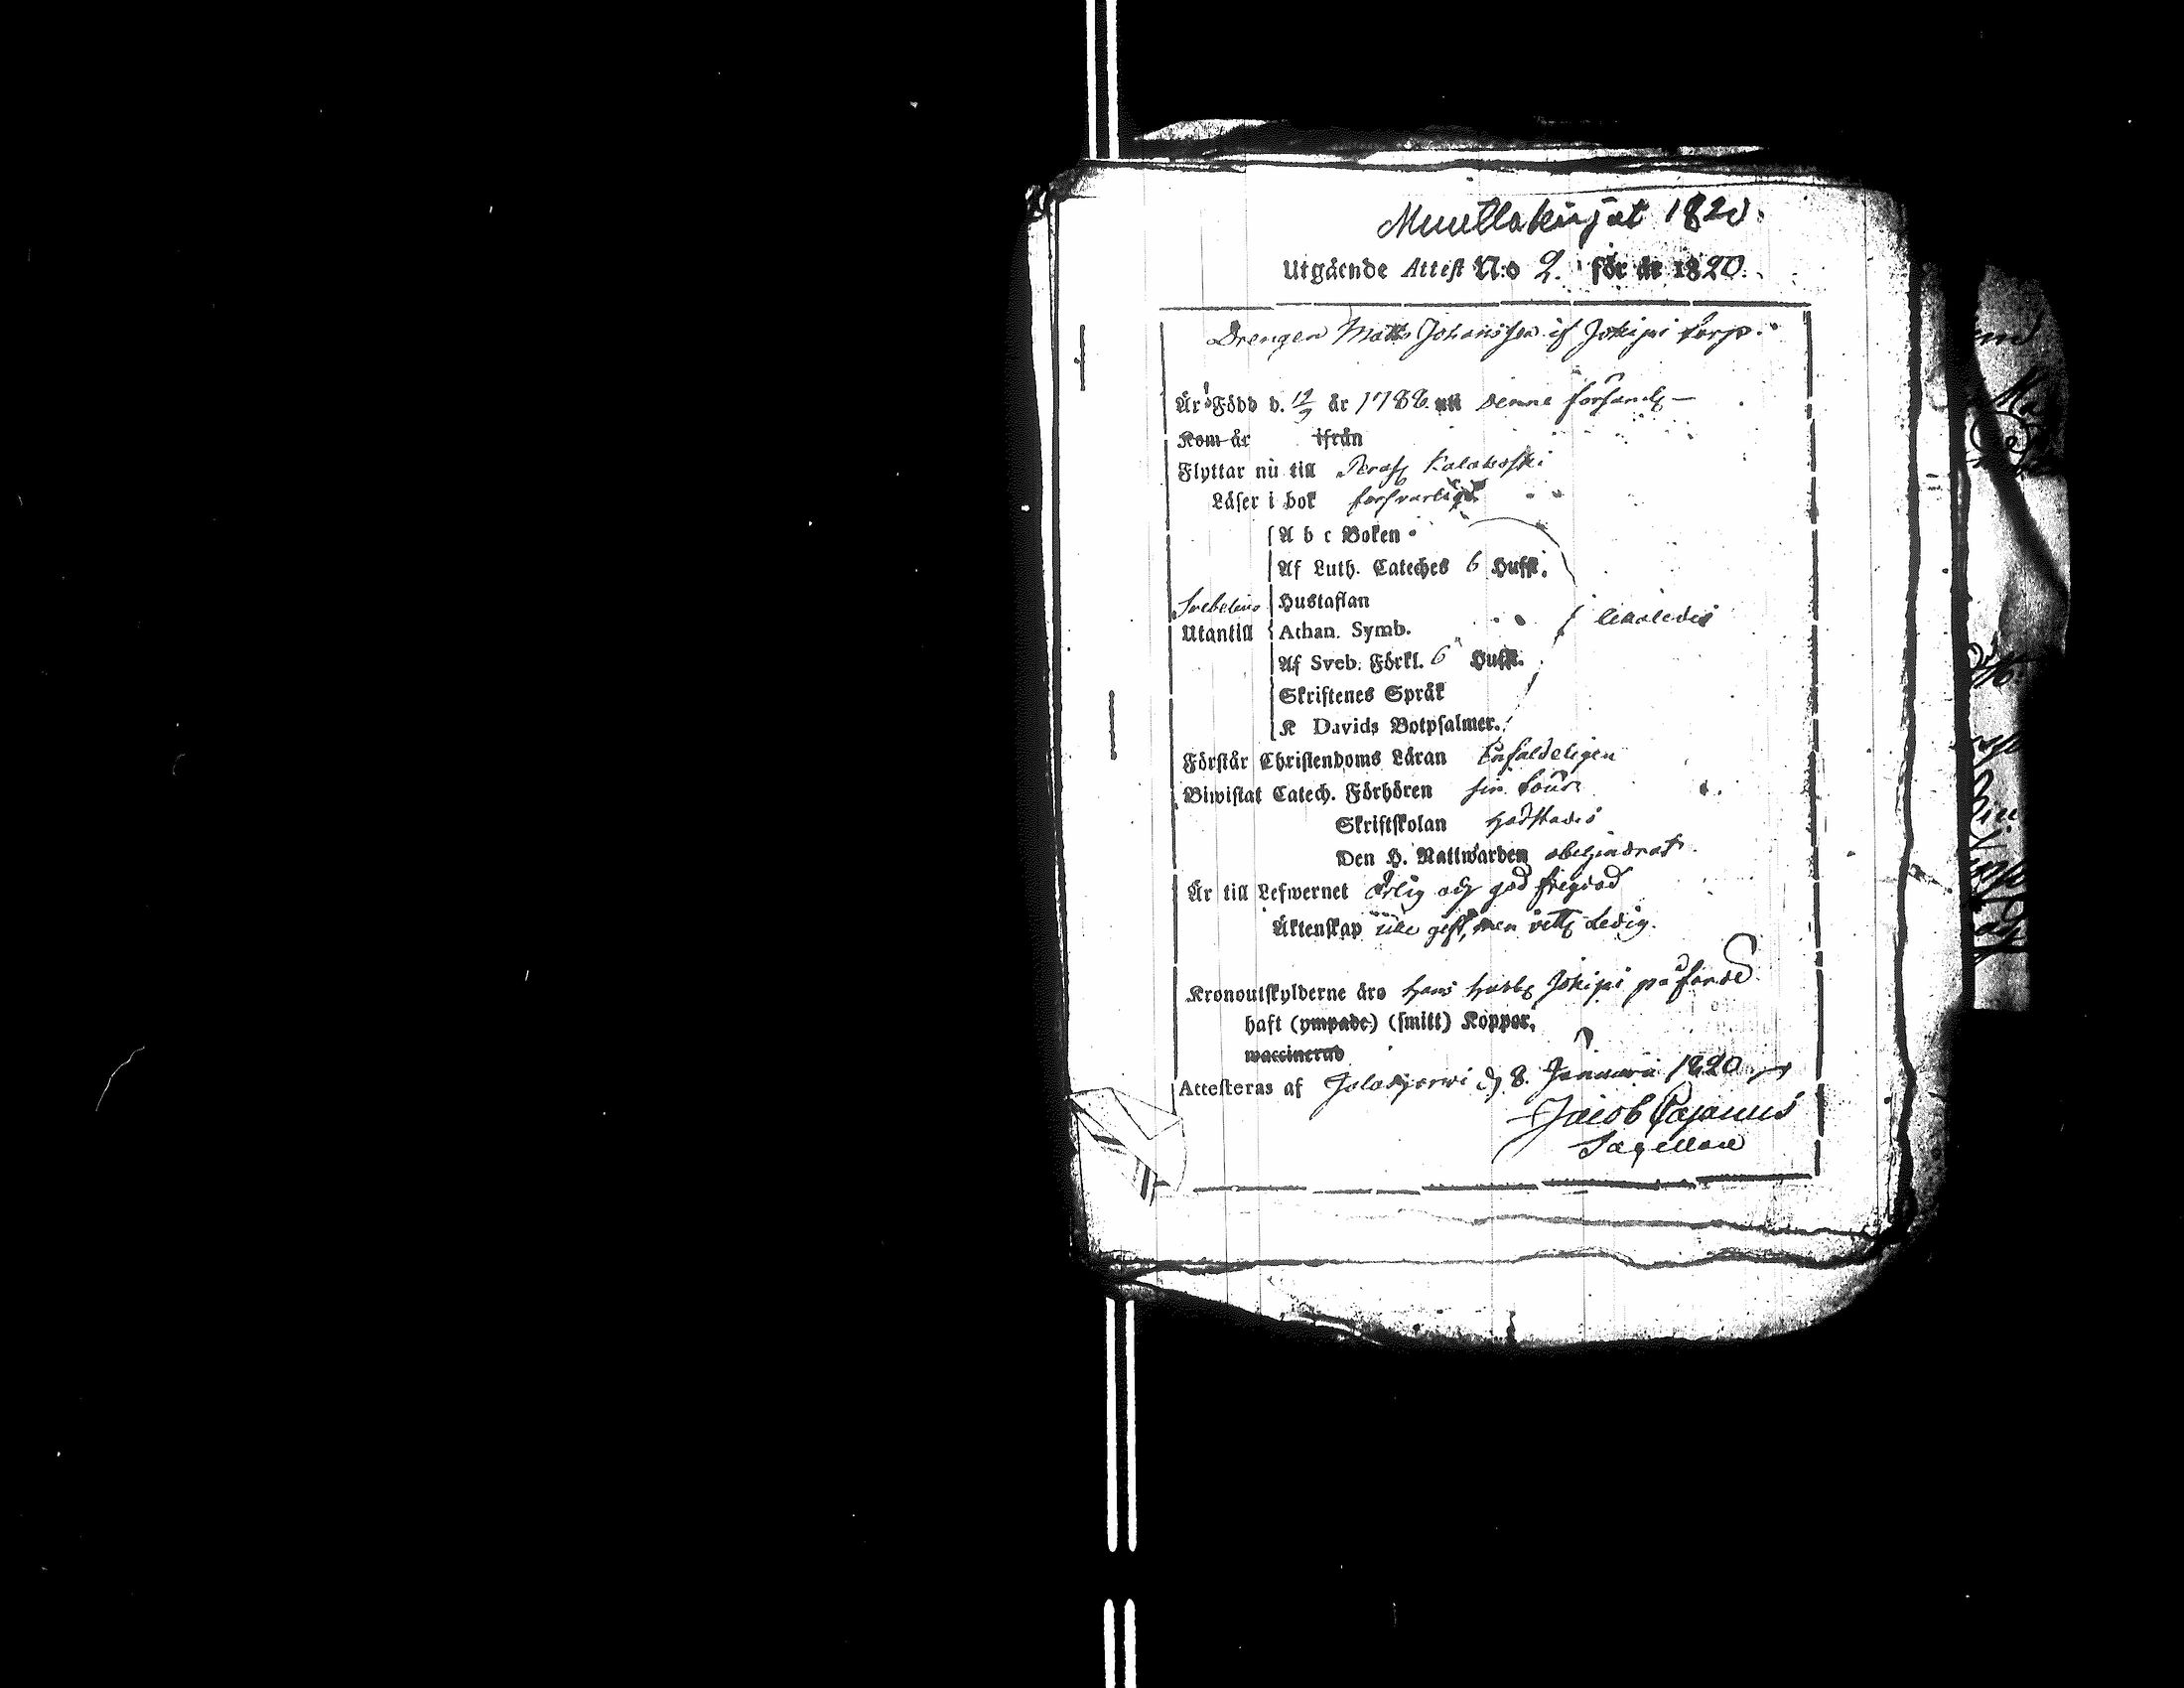 Muuttokirjat 1820.
Utgående Attest N:o 2. för år 1820.
Drengen Matts Johansson if Jokipi torp.
Är Född d. 12/9 år 1788 uti denne församl
Kom år ifrån
Flyttar nu till Kalakoski
Läser i bok försvarligt
A b c Boken
Af Luth. Cateches 6 Hufst.
Hustaflan
Utantill Athan. Symb.
Af Sveb. Förkl. 6 Hufst.
Skriftenes Språk
K Davids Botpsalmer.
Förstår Christendoms Läran Enfaldeligen
Biwistat Catech. Förhören
Skriftskolan
Den H. Nattwarden obehindrat
Är till Lefwernet Ärlig och god frejdad
Äktenskap icke gift, men Ledig.
Kronoutskylderne äro Hans Jokipi påförde
haft (ympade) (smitt) Koppor,
waccinerad
Attesteras af Jalasjerwi d. 8. Januarii 1820
Jacob Cajanus
Sacellan